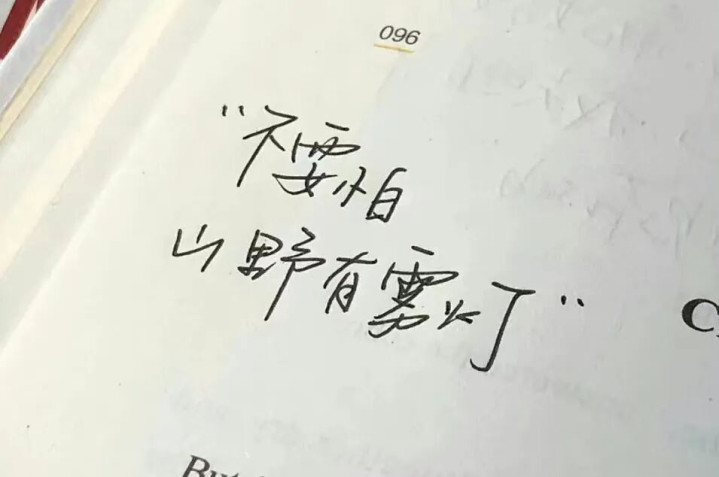 096
“不要怕
山野有雾灯”
But